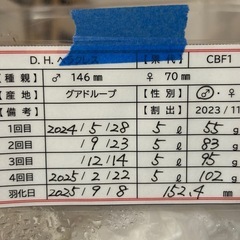 D. H. ヘラクレス 【累代】 CBF1
【種親】 ♂ 146㎜ ♀ 70㎜
【産地】 グアドループ 【性別】 ♂ ・ ♀
【備考】 【割出】 2023 / 11
1回目 2024 / 5 / 28 5 ℓ 55 g
2回目 / 9 / 23 5 ℓ 83 g
3回目 / 12 / 14 5 ℓ 95 g
4回目 2025 / 2 / 22 5 ℓ 102 g
羽化日 2025 / 9 / 8 152.4 mm